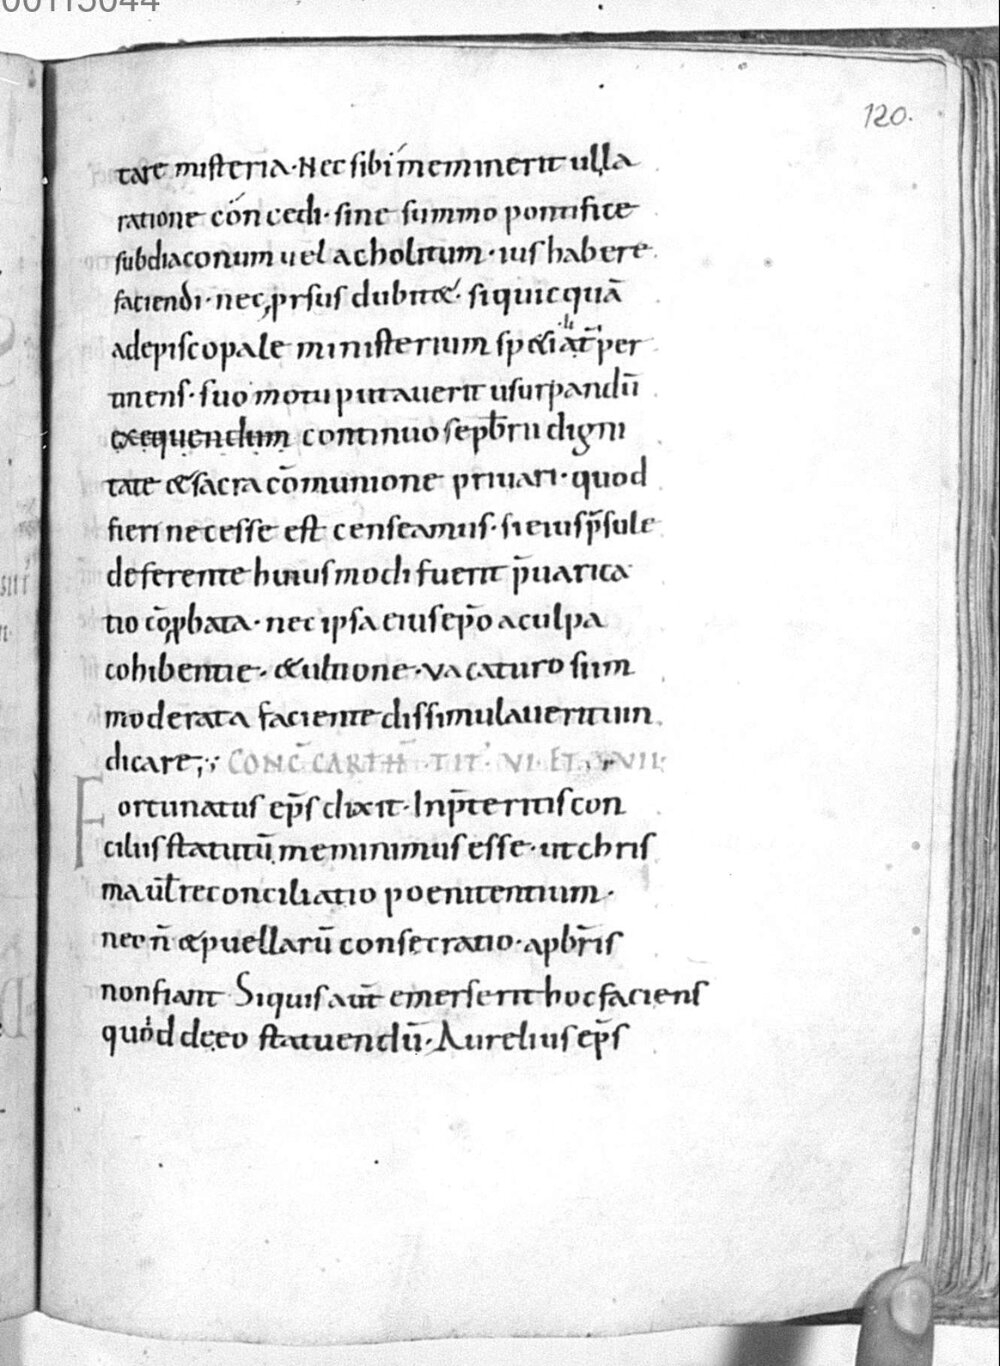 120.
tate misteria· Nec sibi meminerit ulla
ratione concedi· sine summo pontifice
subdiaconum uel acholitum· ius habere
faciendi· nec prsus dubitet· siquicquā
adepiscopale ministerium speciat̄ per
tinens· suo motu putauerit usurpandū
exequendum continuo sepb̄rii digni
tate & sacra cōmunione priuari· quod
fieri necesse est censeamus· si eius p̄sule
deferente huiusmodi fuerit p̄uarica
tio cōpbata· nec ipsa eius ep̄o a culpa
cohibentie· & ultione· vacaturo sum
moderata faciente dissimulauerit uin
dicare;
CONC̄ CARTH̄ · TIT· VI· ET· VII·
Fortunatus ep̄s dixit· In p̄teritis con
ciliis statutū meminimus esse· ut chris
ma uł reconciliatio poenitentium·
nec n̄ & puellarū consecratio· a pb̄ris
non fiant Siquis aut̄ emerserit hoc faciens
quod de eo statuendū· Aurelius ep̄s